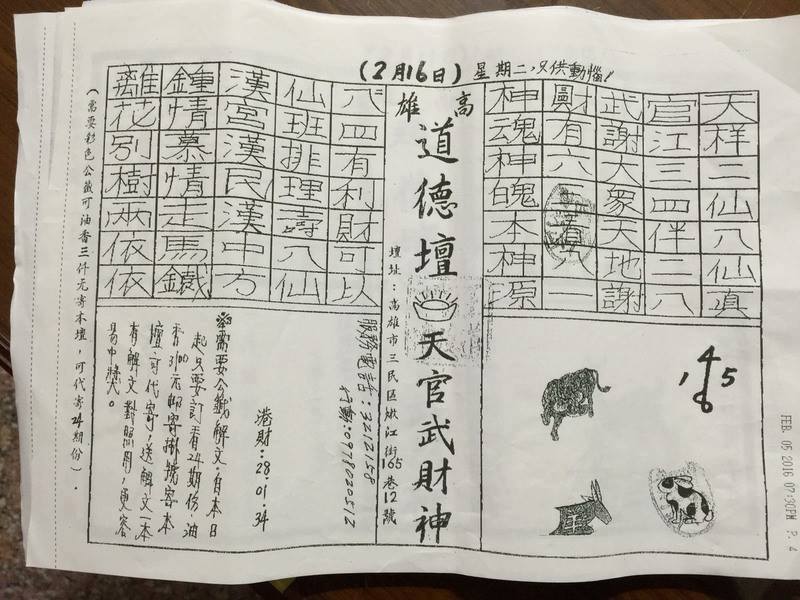 (2月16日) 星期二,只供動惱!
天样二仙八仙真
官江三四伴二八
武謝大象天地謝
財有六
一
神魂神魄本神源
高雄
道德壇
天官武財神
壇址:高雄市三民區嫩江街165巷12號
八四有利財可以
仙班排理壽八仙
漢宮漢民漢中方
鍾情慕情走馬鐵
離花別樹兩依依
1 4 6 5
羊
服務電話:3212158
行動:0978020512
港財:28.01.34
※需要公籤解文。自本日
起只要訂香24期份,油
香3100元郵寄掛號寄本
壇可代寄,送解文一本
有解文對照用,更容
易中獎。
(需要彩色公籤可油香三仟元寄本壇,可代寄24期份)。
FEB. 05 2016 07:30PM P. 4